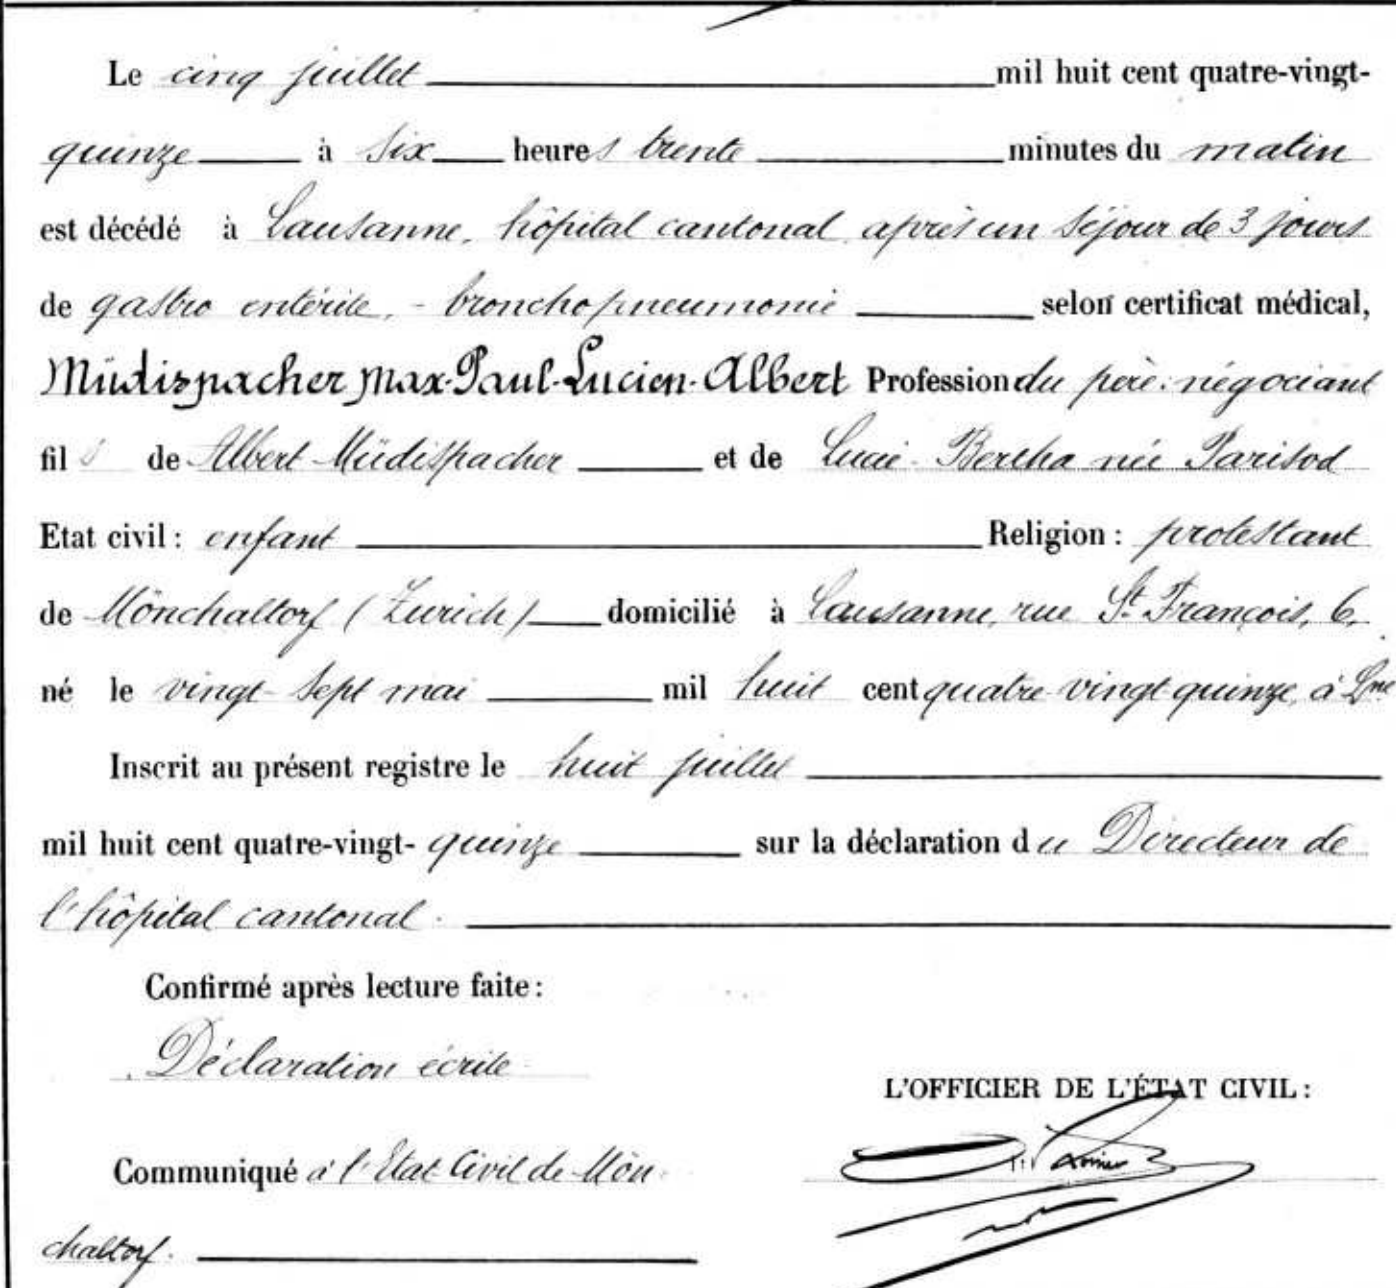 Le cinq juillet mil huit cent quatre-vingt-
quinze à six heures trente minutes du matin
est décédé à Lausanne, hôpital cantonal après un séjour de 3 jours
de gastro entérite, - bronchopneumonie selon certificat médical,
Müdispacher Max-Paul-Lucien-Albert Profession du père: négociant
fils de Albert Müdispacher et de Lucie-Bertha née Parisod
Etat civil: enfant Religion: protestant
de Mönchaltorf (Zurich) domicilié à Lausanne, rue St. François, 6,
né le vingt-sept mai mil huit cent quatre vingt-quinze, à Lne
Inscrit au présent registre le huit juillet
mil huit cent quatre-vingt-quinze sur la déclaration du Directeur de
l'hôpital cantonal.
Confirmé après lecture faite:
Déclaration écrite
L'OFFICIER DE L'ÉTAT CIVIL:
Communiqué à l'Etat Civil de Mön-
chaltorf.